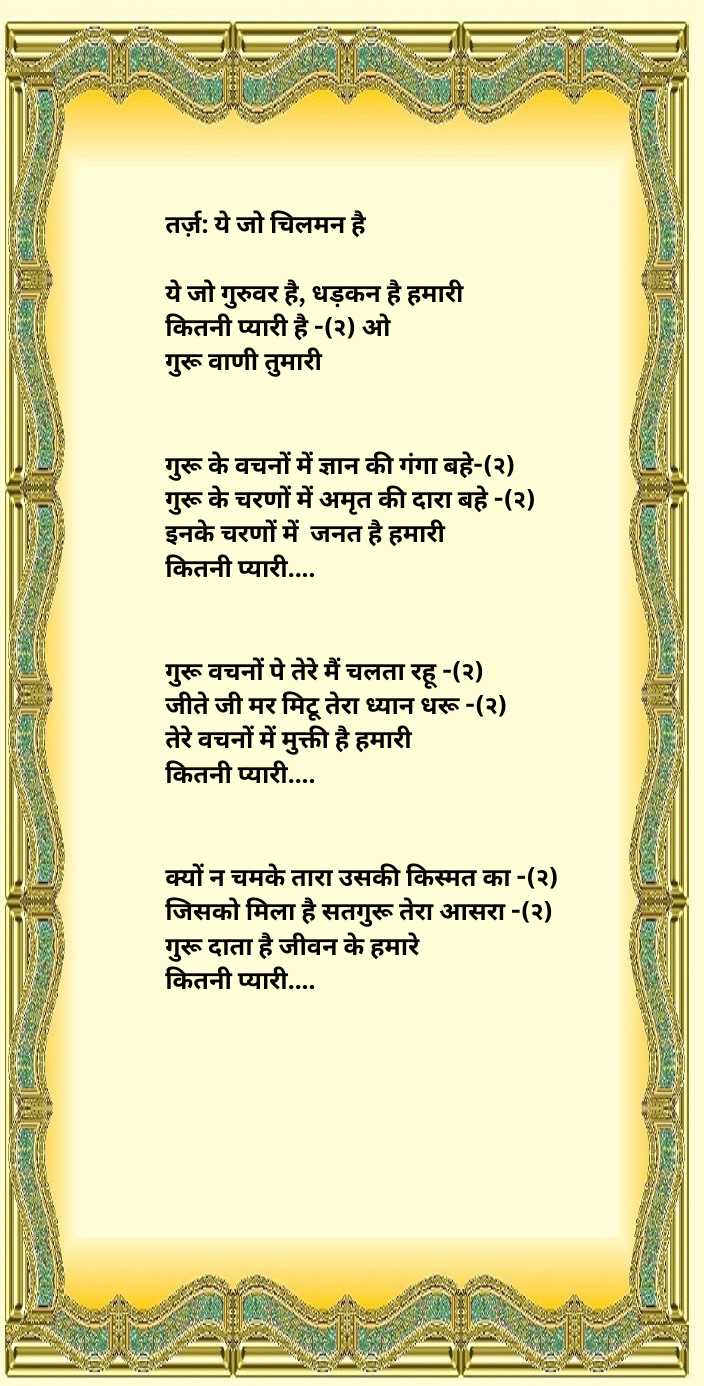 तर्ज़: ये जो चिलमन है
ये जो गुरुवर है, धड़कन है हमारी
कितनी प्यारी है -(२) ओ
गुरू वाणी तुमारी
गुरू के वचनों में ज्ञान की गंगा बहे-(२)
गुरू के चरणों में अमृत की दारा बहे -(२)
इनके चरणों में  जनत है हमारी
कितनी प्यारी....
गुरू वचनों पे तेरे मैं चलता रहू -(२)
जीते जी मर मिटू तेरा ध्यान धरू -(२)
तेरे वचनों में मुक्ती है हमारी
कितनी प्यारी....
क्यों न चमके तारा उसकी किस्मत का -(२)
जिसको मिला है सतगुरू तेरा आसरा -(२)
गुरू दाता है जीवन के हमारे
कितनी प्यारी....